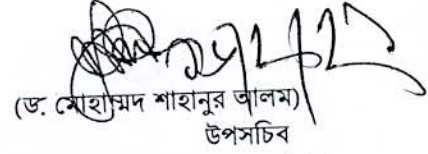 (ড. মোহাম্মদ শাহানুর আলম)
উপসচিব